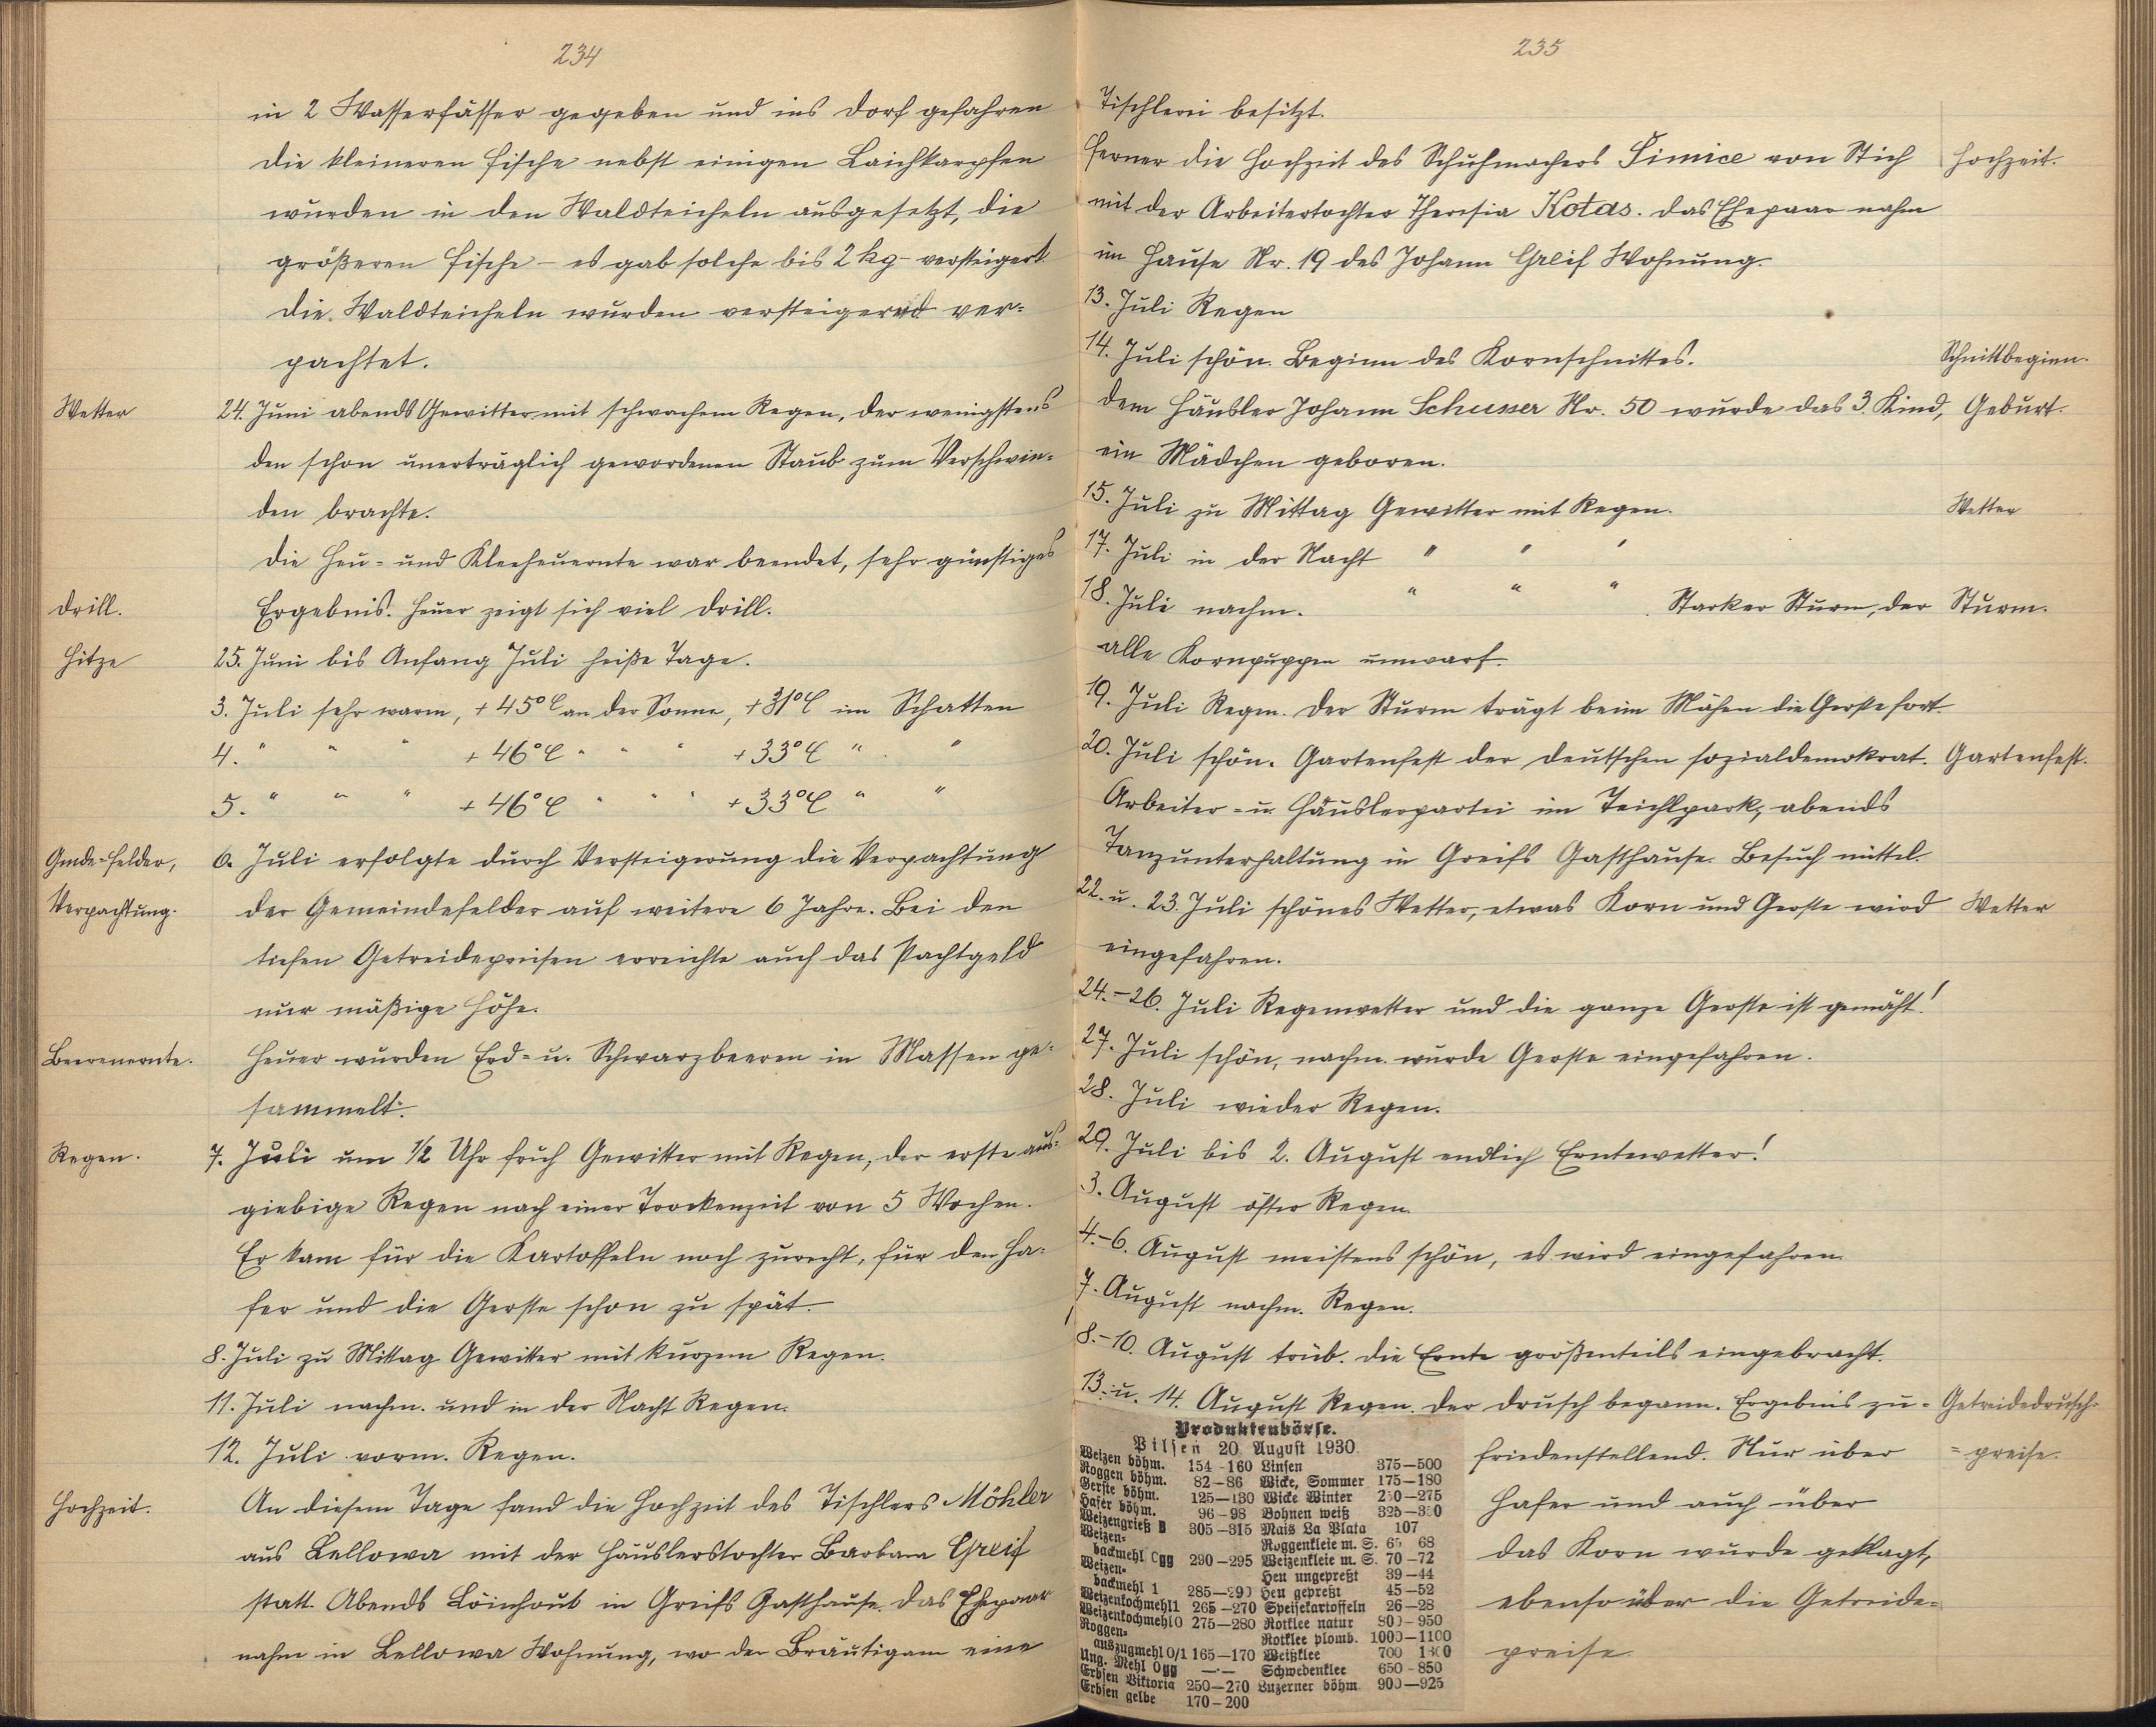 234
in 2 Wasserfässer gegeben und ins Dorf gefahren
Die kleineren Fische nebst einigen Laichkarpfen
wurden in den Waldteicheln ausgesetzt, die
größeren Fische – es gab solche bis 2 kg – versteigert
Die Waldteicheln wurden versteigernd ver-
pachtet.
Wetter 24. Juni abends Gewitter mit schwachem Regen, der wenigstens
den schon unerträglich gewordenen Staub zum Verschwin-
den brachte.
Die Heu- und Kleeheuernte war beendet, sehr günstiges
Drill. Ergebnis. Heuer zeigt sich viel Drill.
Hitze 25. Juni bis Anfang Juli heiße Tage.
3. Juli sehr warm, +45°C an der Sonne, +31°C im Schatten
4. " " " +46°C " " " +33°C " "
5. " " " +46°C " " " +33°C " "
Gmde-Felder, 6. Juli erfolgte durch Versteigerung die Verpachtung
Verpachtung. der Gemeindefelder auf weitere 6 Jahre. Bei den
tiefen Getreidepreisen erreichte auch das Pachtgeld
nur mäßige Höhe.
Beerenernte. Heuer wurden Erd- u. Schwarzbeeren in Massen ge-
sammelt.
Regen. 7. Juli um ½ Uhr früh Gewitter mit Regen, der erste aus-
giebige Regen nach einer Trockenzeit von 5 Wochen.
Er kam für die Kartoffeln noch zurecht, für den Ha-
fer und die Gerste schon zu spät.
8. Juli zu Mittag Gewitter mit kurzem Regen.
11. Juli nachm. und in der Nacht Regen.
12. Juli vorm. Regen.
Hochzeit. An diesem Tage fand die Hochzeit des Tischlers Möhler
aus Lellowa mit der Häuslerstochter Barbara Greif
statt. Abends Löinhout in Greifs Gasthause. Das Ehepaar
nahm in Lellowa Wohnung, wo der Bräutigam eine
235
Tischlerei besitzt.
Ferner die Hochzeit des Schuhmachers Šimice von Stich Hochzeit.
mit der Arbeitertochter Theresia Kotas. Das Ehepaar nahm
im Hause Nr. 19 des Johann Greif Wohnung.
13. Juli Regen
14. Juli schön. Beginn des Kornschnittes. Schnittbeginn.
Dem Häusler Johann Schusser Nr. 50 wurde das 3. Kind, Geburt.
ein Mädchen geboren.
15. Juli zu Mittag Gewitter mit Regen. Wetter
17. Juli in der Nacht " " "
18. Juli nachm. " " " . Starker Sturm, der Sturm.
alle Kornpuppen umwarf.
19. Juli Regen. Der Sturm trägt beim Mähen die Gerste fort.
20. Juli schön. Gartenfest der deutschen sozialdemokrat. Gartenfest.
Arbeiter- u. Häuslerpartei im Teichlpark, abends
Tanzunterhaltung in Greifs Gasthause. Besuch mittel.
22. u. 23. Juli schönes Wetter, etwas Korn und Gerste wird Wetter
eingefahren.
24.–26. Juli Regenwetter und die ganze Gerste ist gemäht!
27. Juli schön, nachm. wurde Gerste eingefahren.
28. Juli wieder Regen.
29. Juli bis 2. August endlich Erntewetter!
3. August öfter Regen.
4.–6. August meistens schön, es wird eingefahren.
7. August nachm. Regen.
8.–10. August trüb. Die Ernte größenteils eingebracht.
13. u. 14. August Regen. Der Drusch begann. Ergebnis zu- Getreidedrusch-
friedenstellend. Nur über = preise.
Hafer und auch über
das Korn wurde geklagt,
ebenso über die Getreide-
preise
Produktenbörse.
Pilsen 20 August 1930.
Weizen böhm. 154-160 Linsen 375—500
Roggen böhm. 82—86 Wicke, Sommer 175—180
Gerste böhm. 125—130 Wicke Winter 250—275
Hafer böhm. 96—98 Bohnen weiß
Weizengrieß B 305—315 Mais La Plata 107
Weizen- Roggenkleie m. S. 68
backmehl 0gg 290—295 Weizenkleie m. S. 70—72
Weizen- Heu ungepreßt 39—44
backmehl 1 285—290 Heu gepreßt 45—52
Weizenkochmehl1 265—270 Speisekartoffeln 26—28
Weizenkochmehl0 275—280 Rotklee natur 800—950
Roggen- Rotklee plomb. 1000—1100
auszugmehl 0/1 165—170 Weißklee 700
Ung. Mehl 0gg —·— Schwedenklee 650-850
Erbsen Viktoria 250—270 Luzerner böhm 900—925
Erbsen gelbe 170—200